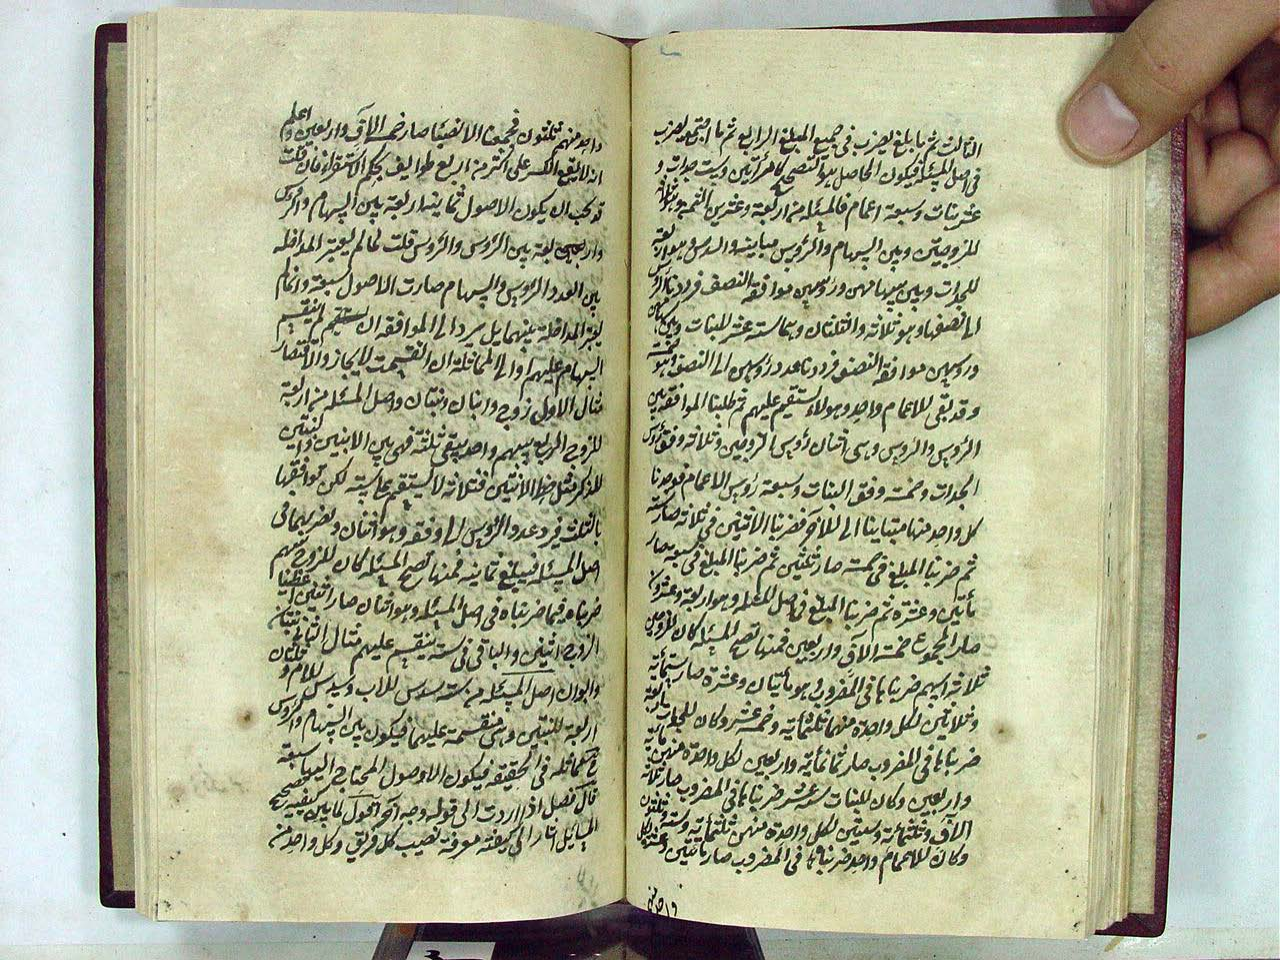 الثالث ثم ما بلغ يضرب فى جميع المبلغ الرابع ثم ما اجتمع يضرب
فى اصل المسئلة فيكون الحاصل هو التصحيح كامرأتين وست جدات و
عشر بنات وسبعة اعمام فالمسئلة من اربعة وعشرين الثمن وهو ثلاثة
للزوجتين وبين السهام والرؤس مباينة والسدس وهو اربعة
للجدات وبين سهامهن ورؤسهن موافقة النصف فرددنا الرؤس
الى نصفها وهو ثلاثة والثلثان وهما ستة عشر للبنات وبين سهامهن
ورؤسهن موافقة النصف فرددنا عدد رؤسهن الى النصف وهو خمسة
وقد بقى للاعمام واحد وهو لا يستقيم عليهم ثم طلبنا الموافقة بين
الرؤس والرؤس وهى اثنان رؤس الزوجتين وثلاثة وفق رؤس
الجدات وخمسة وفق البنات وسبعة رؤس الاعمام فوجدنا
كل واحد منها متباينا الى الآخر فضربنا الاثنين فى ثلاثة صار ستة
ثم ضربنا المبلغ فى خمسة صار ثلثين ثم ضربنا المبلغ فى سبعة صار
مأتين وعشرة ثم ضربنا المبلغ فى اصل المسئلة وهو اربعة وعشرون
صار المجموع خمسة آلاف واربعين فمنها تصح المسئلة كان للزوجتين
ثلاثة اسهم ضربناها فى المضروب هو مأتان وعشرة صار ستمأية
وثلاثين لكل واحدة منها ثلثمائة وخمسة عشر وكان للجدات اربعة
ضربناها فى المضروب صار ثمانمائة واربعين لكل واحدة منهن مأية
واربعين وكان للبنات ستة عشر ضربناها فى المضروب صار ثلاثة
آلاف وثلثمائة وستين لكل واحدة منهن ثلثمائة وستة وثلثون
وكان للاعمام واحد ضربناه فى المضروب صار مأتين وعشرة لكل
واحد منهم
واحد منهم ثلثون فجميع الانصباء صار خمسة آلاف واربعين واعلم
انه لا يقع الكسر على اكثر من اربع طوايف بحكم الاستقراء فان قلت
قد يجب ان يكون الاصول ثمانية اربعة بين السهام والرؤس
واربعة بين الرؤس والرؤس قلت لما لم يعتبر المداخلة
بين العدد الرؤس والسهام صارت الاصول سبعة وانما لم
يعتبر المداخلة بينهما بل يرد الى الموافقة ان لم يستقيم
السهام عليهم او الى المماثلة ان انقسمت للايجاز والاقتصار
مثال الاول زوج وابنان وبنتان واصل المسئلة من اربعة
للزوج الربع سهم واحد يبقى ثلثة فهى بين الابنين والبنتين
للذكر مثل حظ الانثيين فثلاثة لا يستقيم على ستة لكن توافقها
بالثلث فيرد عدد الرؤس الى وفقه وهو اثنان ويضربها فى
اصل المسئلة فيبلغ ثمانية فمنها تصح المسئلة كان للزوج سهم
ضربناه فيما ضربناه فى اصل المسئلة وهو اثنان صار اثنين اعطينا
الزوج اثنين والباقى فى ستة ينقسم عليهم مثال الثانى بنتان
وابوان اصل المسئلة من ستة سدس للاب وسدس للام وثلثان
اربعة للبنتين وهى منقسمة عليهما فيكون بين السهام والرؤس
مماثلة فى الحقيقة فيكون الاصول المحتاج اليها سبعة
قال فصل اذا اردت الى قوله وجه آخر اقول لما بين كيفية تصحيح
المسائل اشار الى كيفية معرفة نصيب كل فريق وكل واحد من